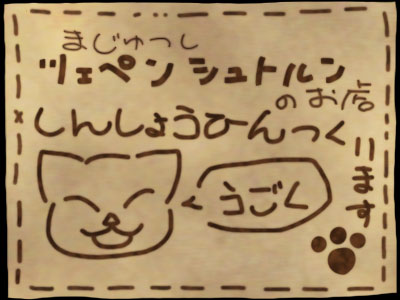 まじゅつし
ツェペシュトルン
のお店
しんしょうひんつくります
うごく